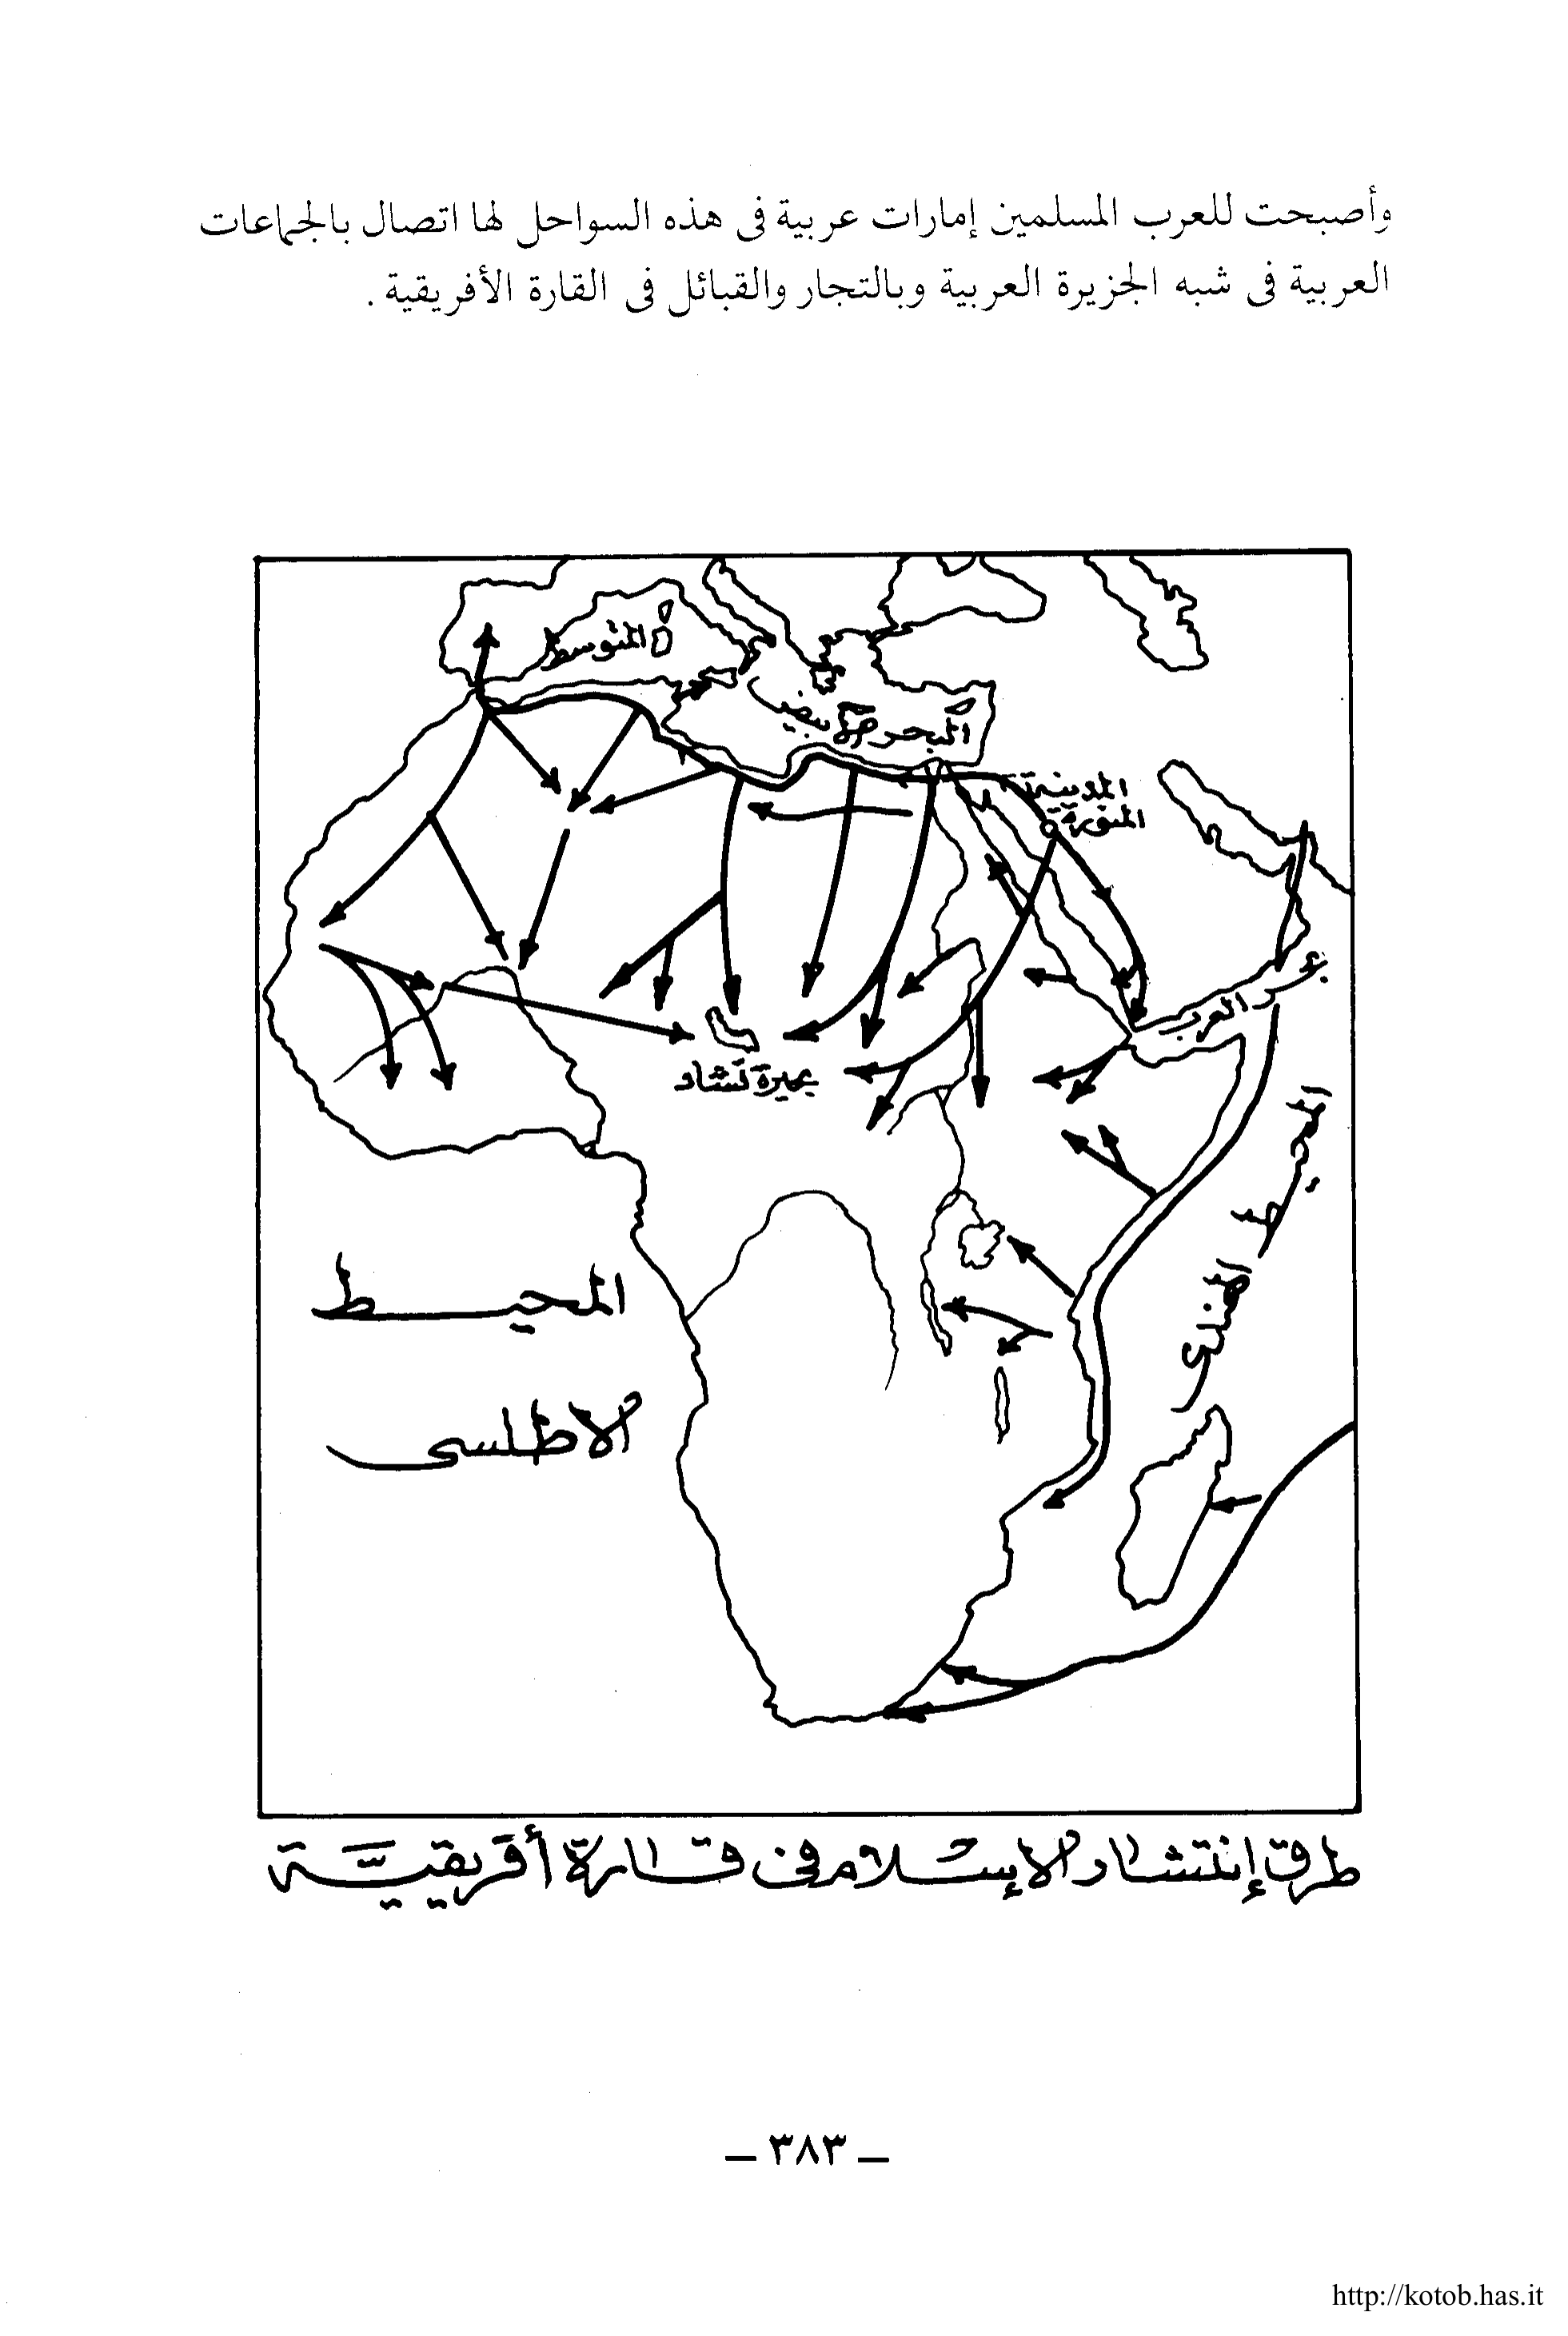 وأصبحت للعرب المسلمين إمارات عربية فى هذه السواحل لها اتصال بالجماعات
العربية فى شبه الجزيرة العربية وبالتجار والقبائل فى القارة الأفريقية .
المتوسط
البحر الأبيض
المدينة
المنورة
بحر العرب
بحيرة تشاد
المحيط الهندى
المحيط
الاطلسى
طرق إنتشار الإسلام فى قارة أفريقية
– ٣٨٣ –
http://kotob.has.it